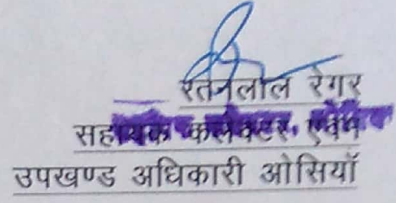 रतनलाल रेगर
सहायक कलेक्टर, एवम
उपखण्ड अधिकारी ओसियाँ